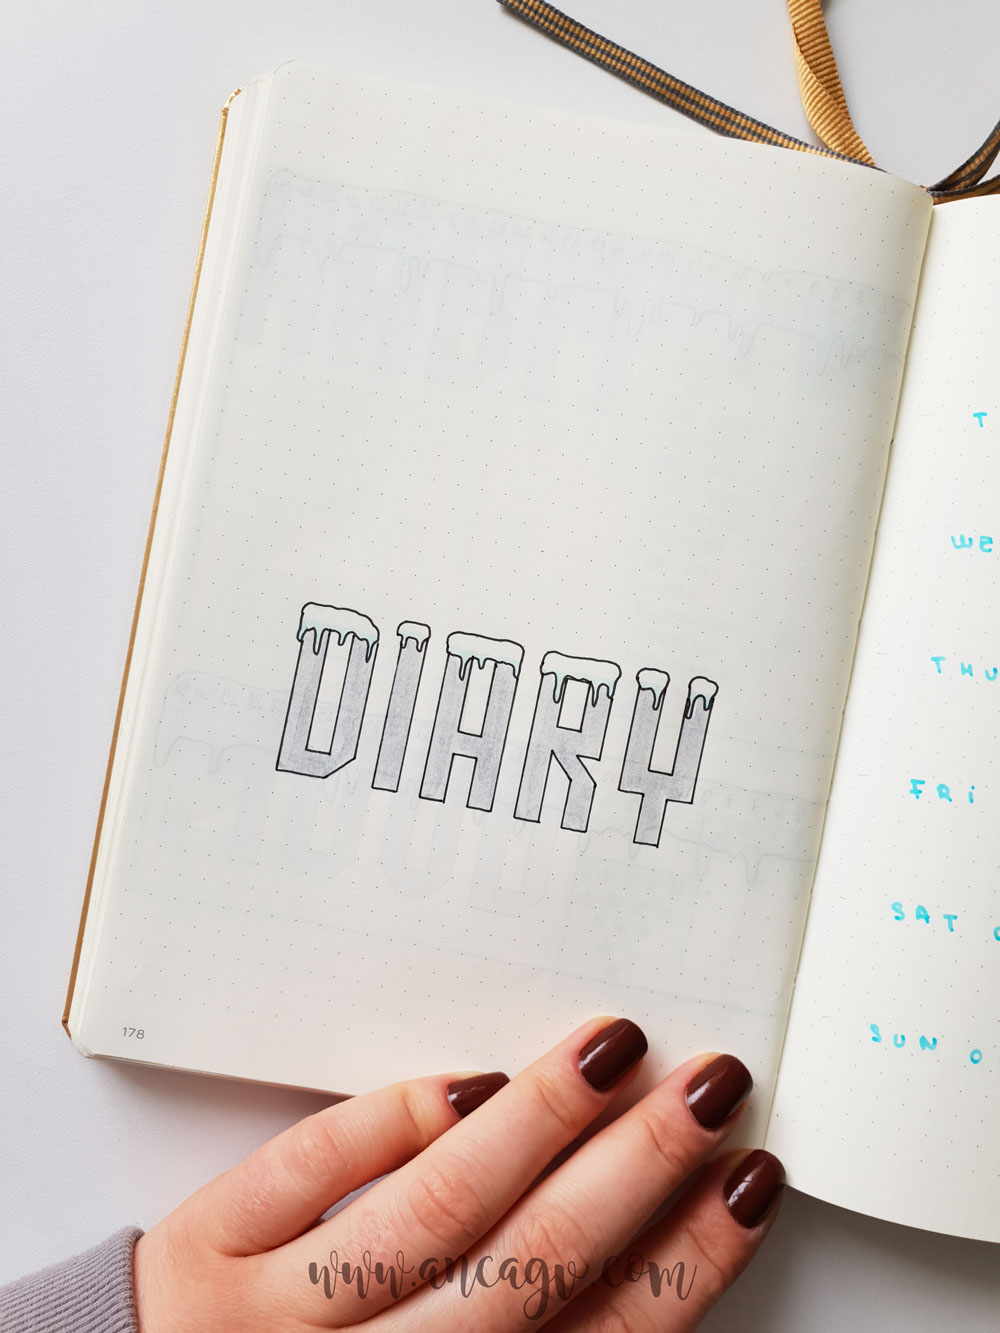 DIARY
178
T
WE
THU
FRI
SAT
SUN 0
www.ancagv.com